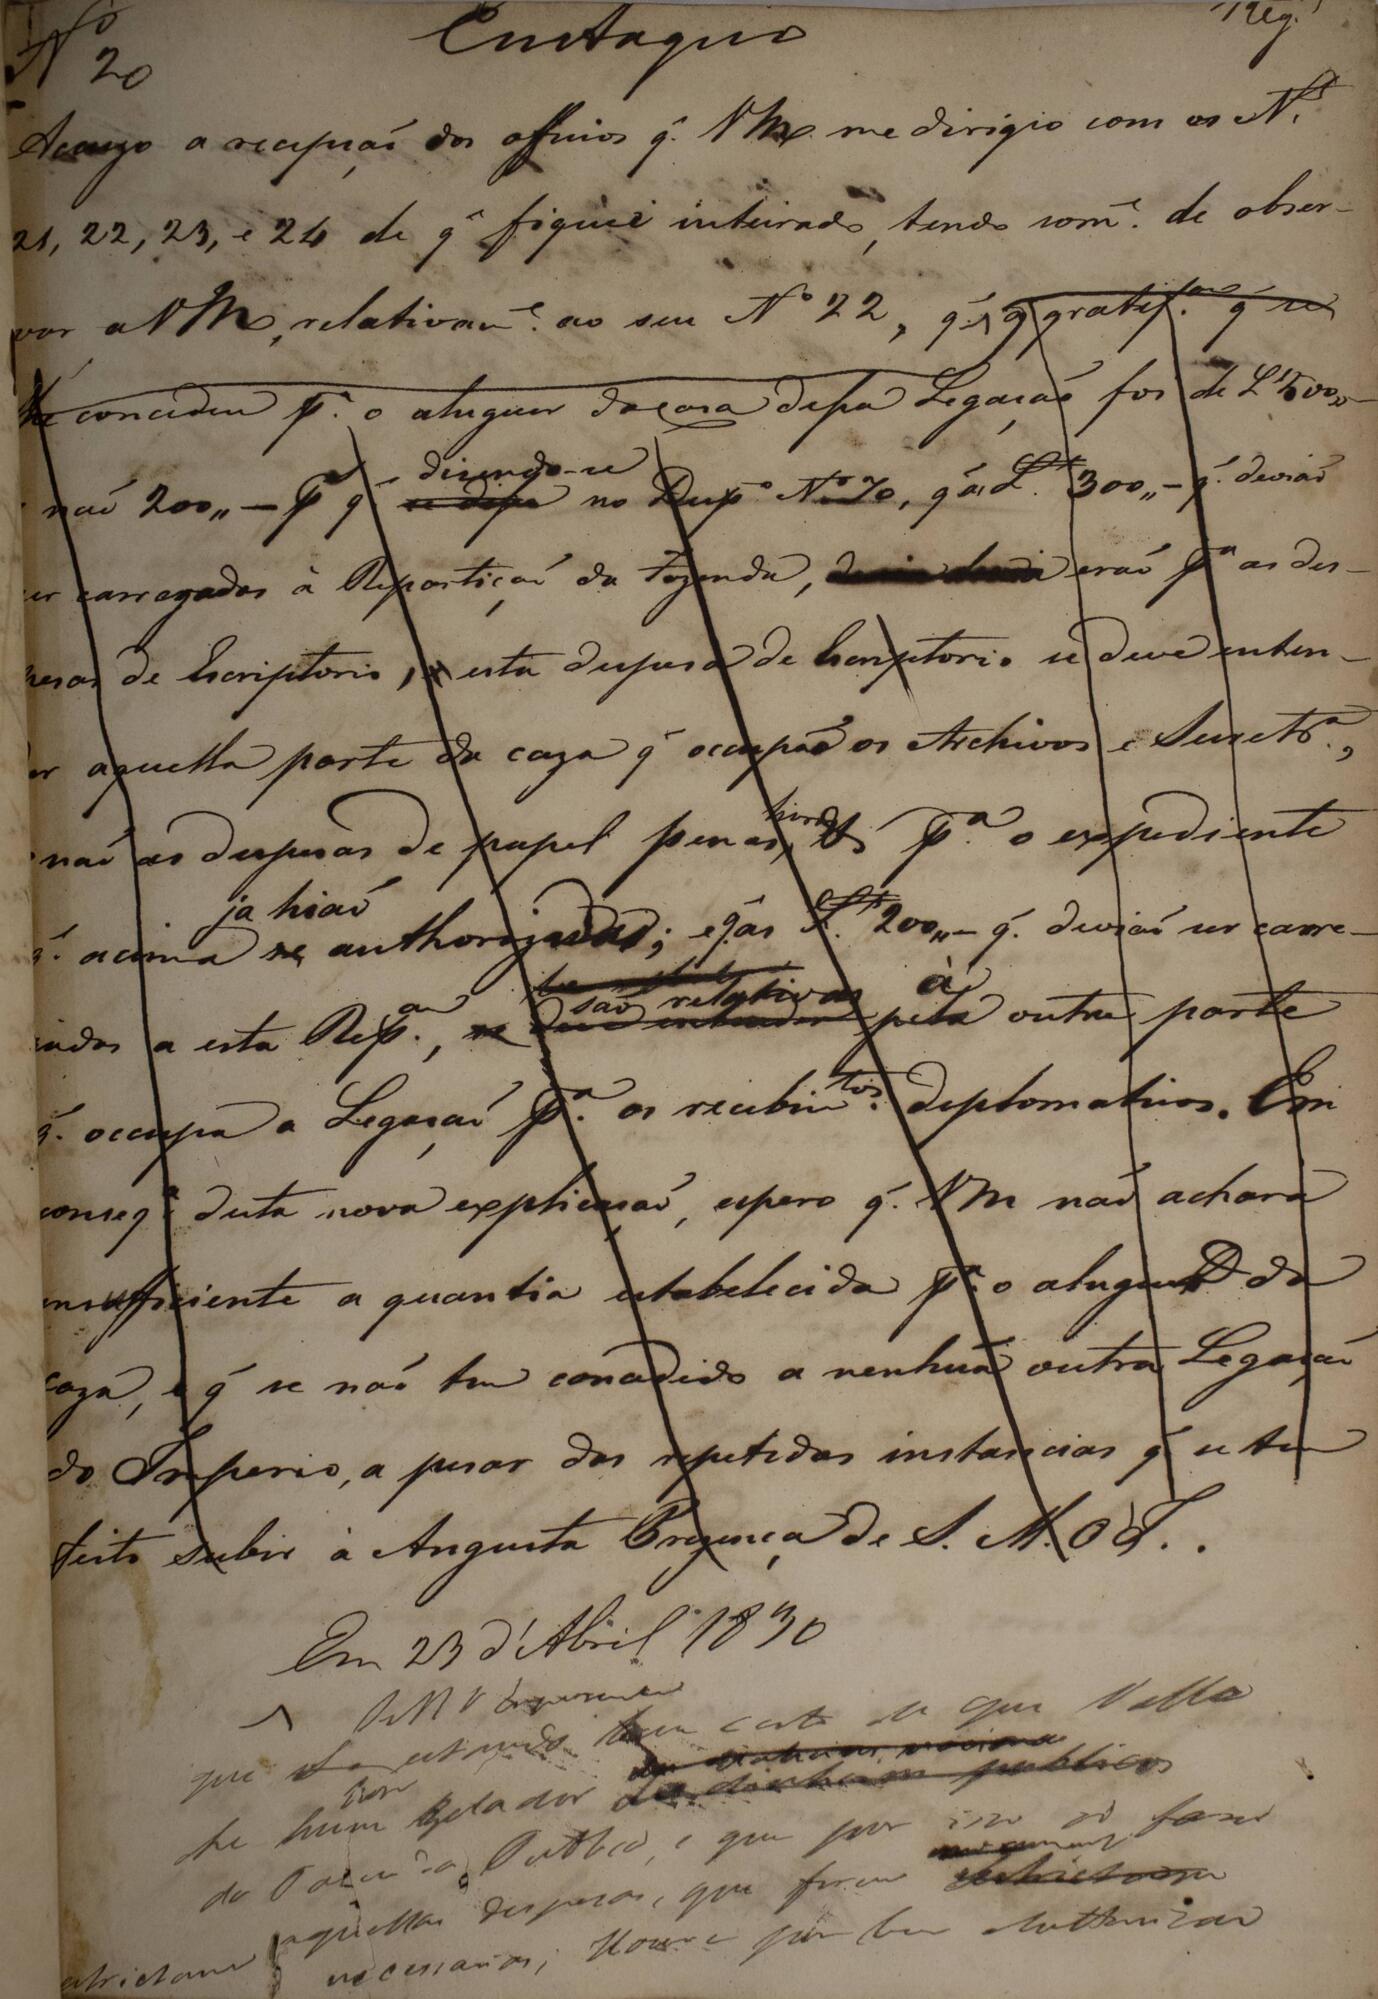 Nº 20
Eustaquio
Reg.
Accuzo a recepçaõ dos officios q. VM me dirigio com os Nˢ.
21, 22, 23, e 24 de q. fiquei inteirado, tendo som.ᵉ de obser-
var a VM, relativam.ᵉ ao seu Nº 22, q. a gratif.ᵃᵐ q. se
lhe concedeu p.ᵃ o aluguer da casa dessa Legaçaõ foi de L 500,,-
naõ 200,,- p.ʳ q. dizendo-se no Desp.º Nº 70, q. as L. 300,,- q. deviaõ
ser carregadas à Repartiçaõ da Fazenda, eraõ p.ᵃ as des-
pesas de Escriptorio, esta despesa de Escriptorio se deve enten-
der aquella parte da caza q. occupaõ os Archivos e Secretr.ᵃ,
naõ as despesas de papel pennas, p.ᵃ o expediente
ja hiaõ
q. acima authorizadas; e q. as L. 200,,- q. deviaõ ser carre-
saõ relativas à
gadas a esta Rep.ᵃᵐ, pela outra parte
q. occupa a Legaçaõ p.ᵃ os recebim.ᵗᵒˢ diplomaticos. Em
conseq.ᵃ desta nova explicaçaõ, espero q. VM naõ achará
insufficiente a quantia estabelecida p.ᵃ o aluguer da
caza, e q. se naõ tem concedido a nenhuã outra Legaçaõ
do Imperio, a pesar das repetidas instancias q. se tem
feito subir à Augusta Prezença de S. M. O I..
Em 23 d'Abril 1830
que estando bem certo de que Vossa
he hum bom zelador da dinheiros publicos
da Fazenda Publica, e que por isso só fará
aquellas despesas, que forem
estrictam.ᵉ necessarias, Houve por bem authorizar